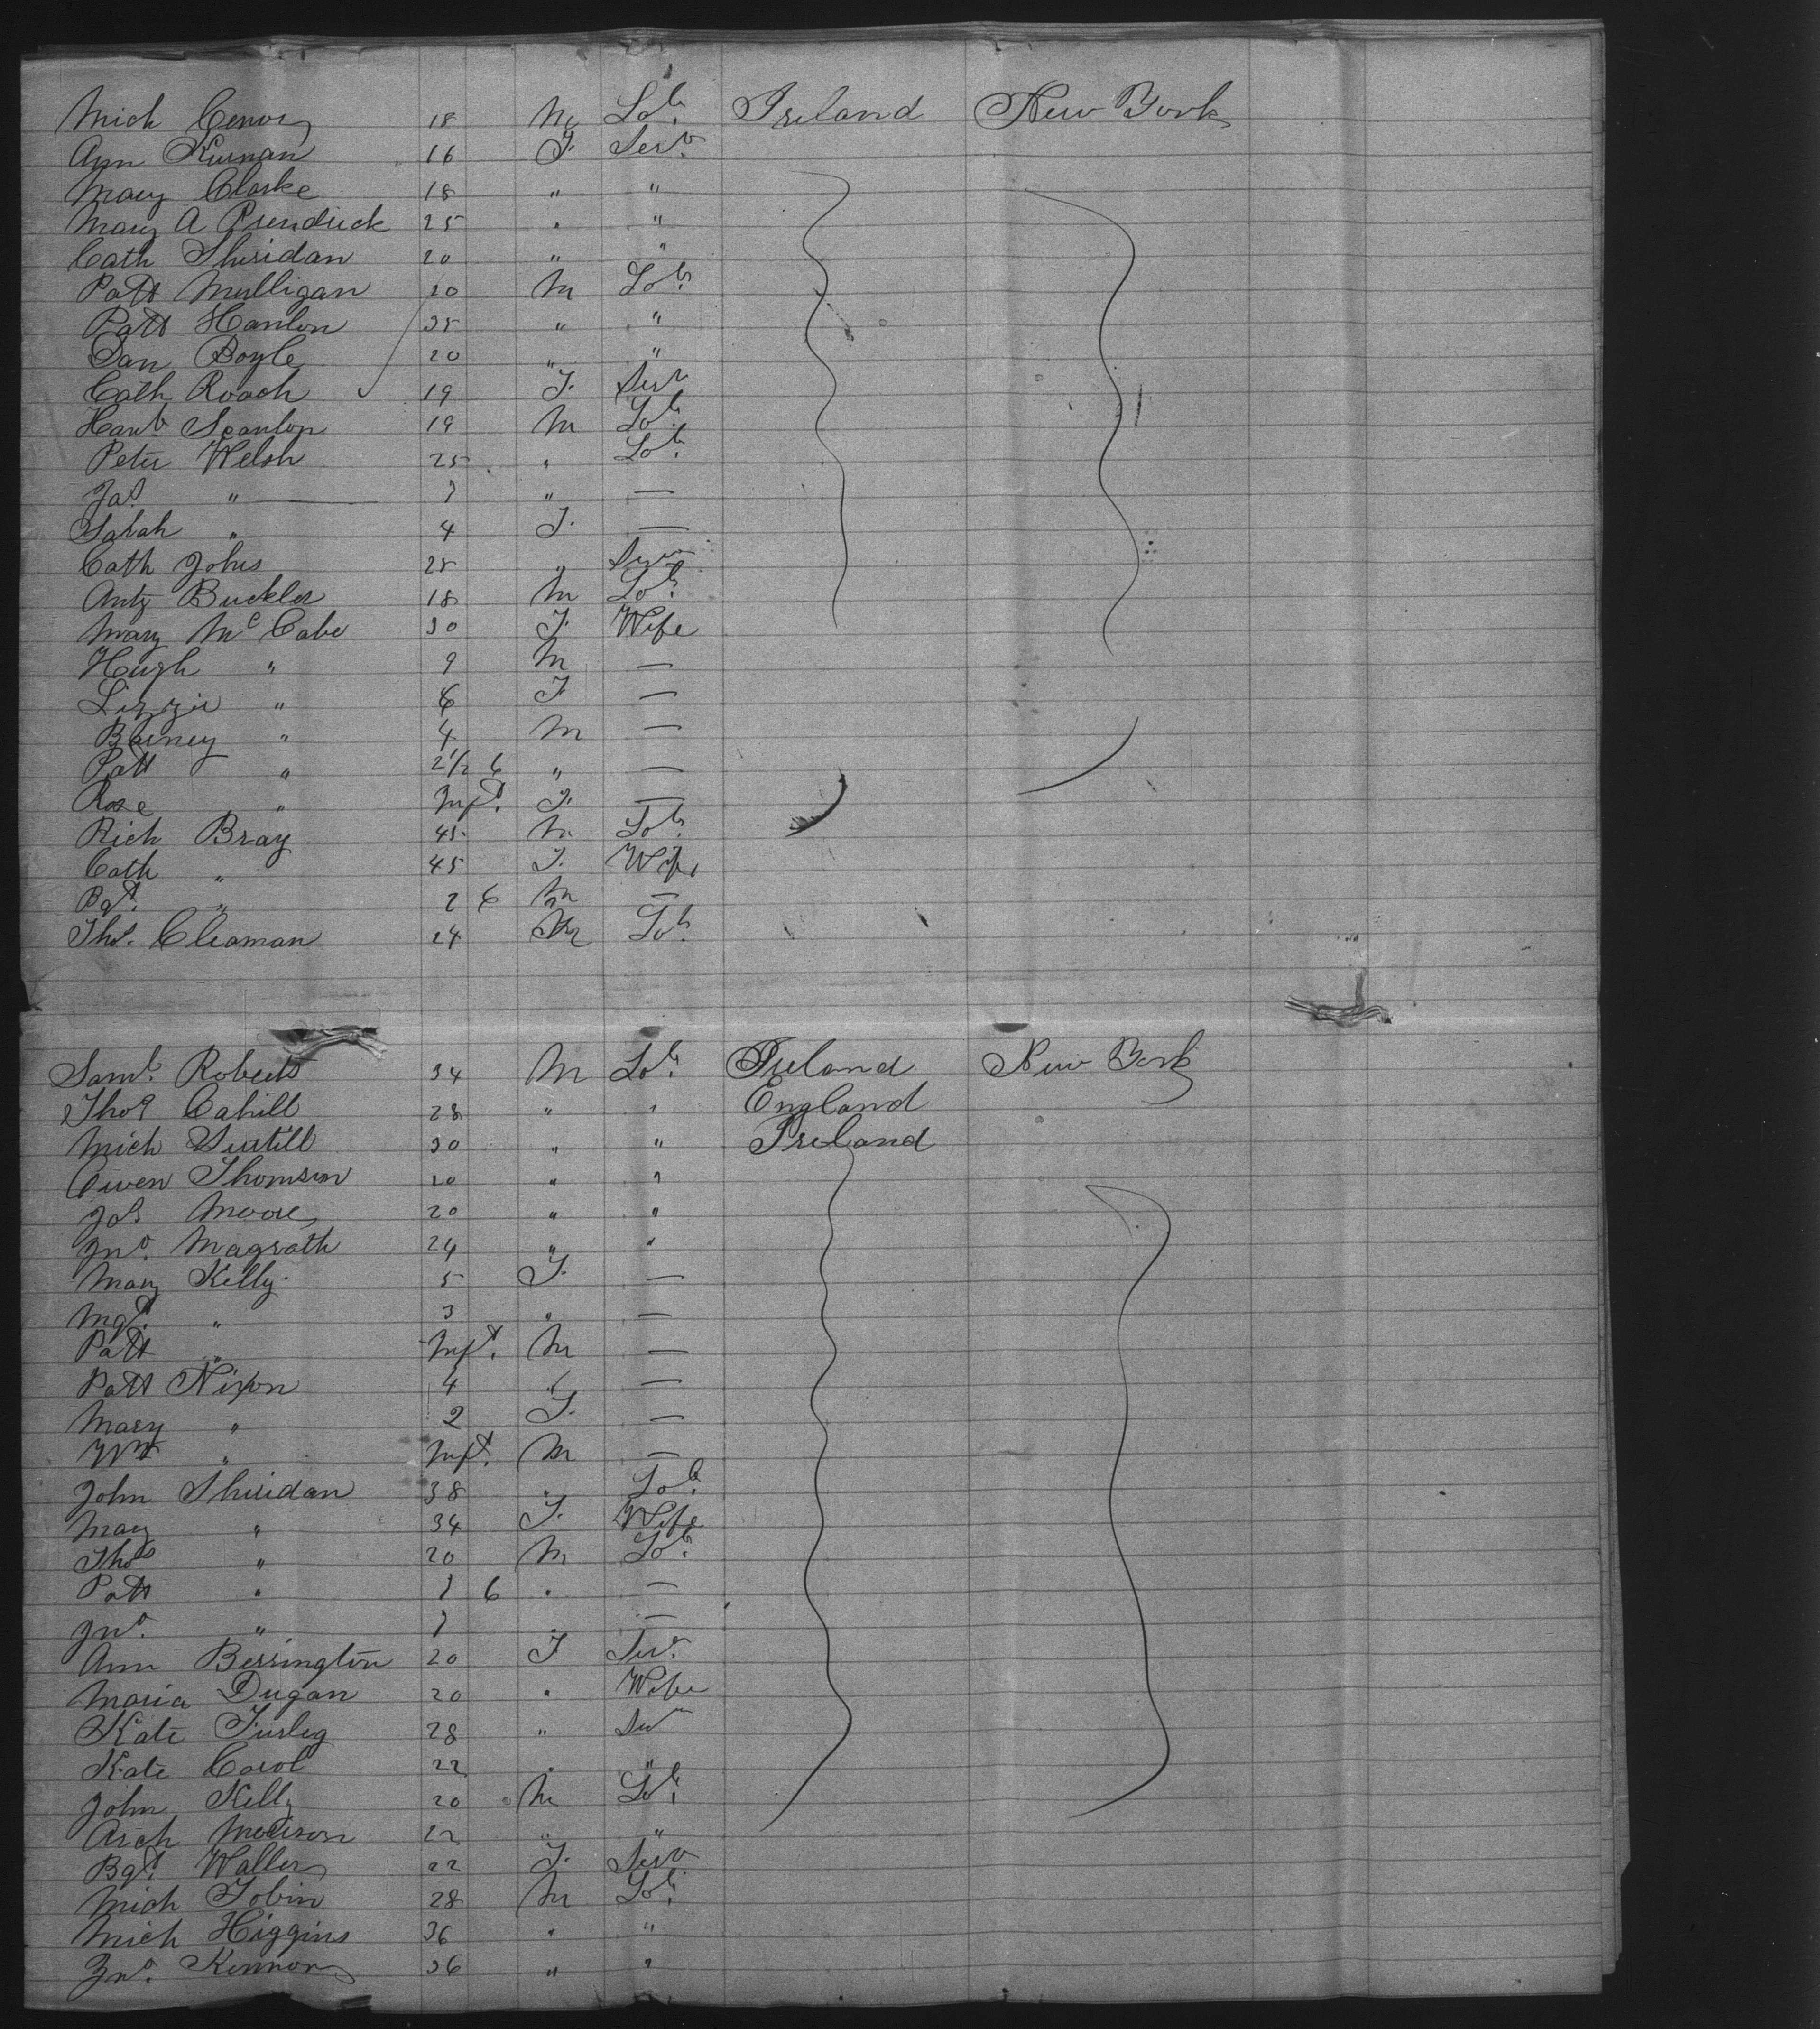 Mich 18 M Lab. Ireland New York
Ann Kurnan 16 F. Serv.
Mary Clarke 18 " "
Mary A Prendrick 25 " "
Cath Sheridan 20 " "
Patt Mulligan 20 M Lab.
Patt Hanlon 35 " "
Dan Boyle 20 " "
Cath Roach 19 F. Serv
Scanlon 19 M Lab.
Peter Welsh 25 " Lab.
Jas. " " —
Sarah " 4 F. —
Cath Johns 25 " Serv
Anty Buckler 18 M Lab.
Mary McCabe 30 F. Wife
Hugh " 9 M —
Lizzie " 6 F —
Barney " 4 M —
Patt " 2½ 6 " —
Rose " Inft. F. —
Rich Bray 45 M Lab.
Cath " 45 F. Wife
Bgt. " 2 6 M —
Thos. Cleaman 24 M Lab.
Saml. Roberts 34 M Lab. Ireland New York
Thos Cahill 28 " " England
Mich 30 " " Ireland
Owen Thomson 20 " "
Jas Moore 20 " "
Jno. Magrath 24 " "
Mary Kelly 5 F. —
Mgt. " 3 " —
Patt " Inft. M —
Patt Nixon 4 " —
Mary " 2 F. —
Wm " Inft. M —
John Sheridan 38 " Lab.
Mary " 34 F. Wife
Thos " 20 M Lab.
Patt " 6 " —
Jno. " " —
Ann Berrington 20 F Serv.
Maria Dugan 20 " Wife
Kate 28 " Serv
Kate Carol 22 " "
John Kelly 20 M Lab.
Arch 22 " "
Bgt. Waller 22 F. Serv
Mich Tobin 28 M Lab.
Mich Higgins 36 " "
Jno. Kennon 36 " "